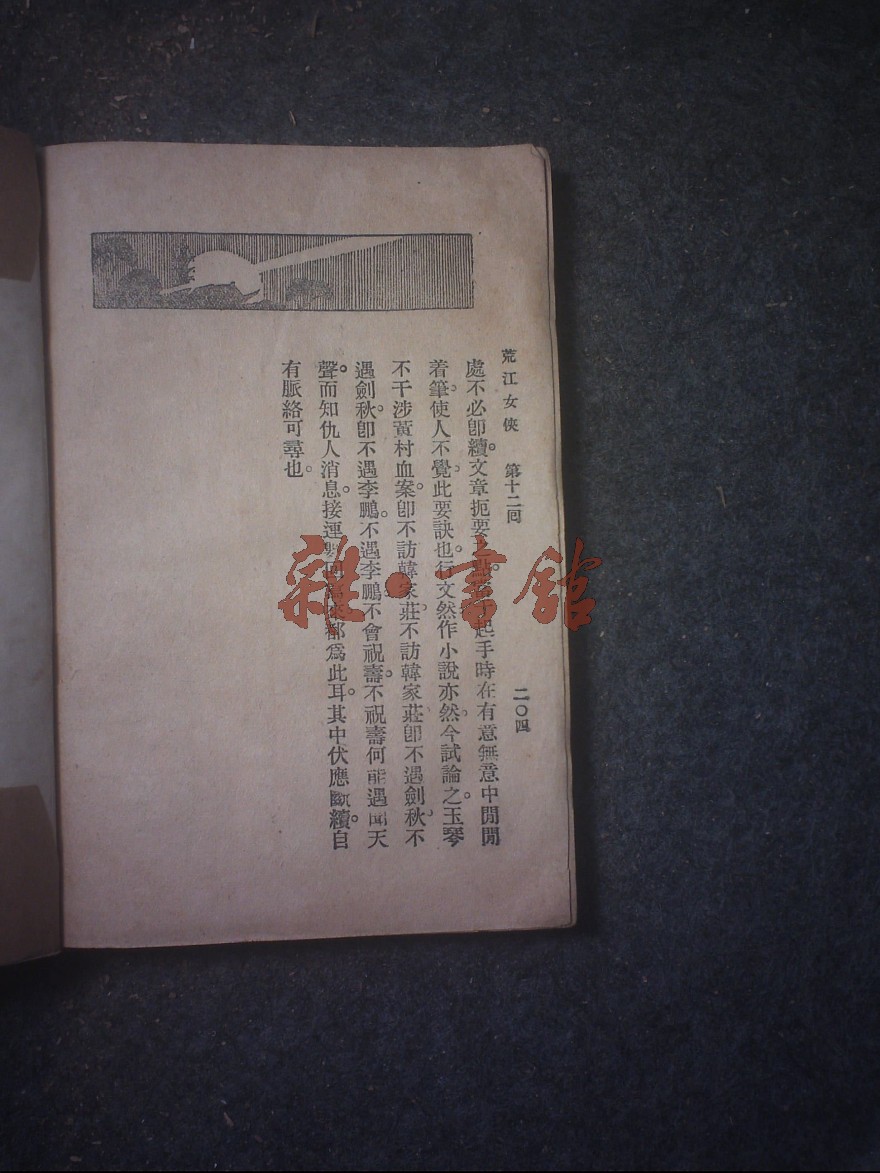 荒江女俠 第十二回 二〇四
處不必卽續。文章扼要起手時在有意無意中閒閒
着筆。使人不覺。此要訣也。行文然作小說亦然。今試論之。玉琴
不干涉黃村血案。卽不訪韓家莊。不訪韓家莊。卽不遇劍秋。不
遇劍秋。卽不遇李鵬。不遇李鵬。不會祝壽。不祝壽。何能遇聞天
聲。而知仇人消息。接連數回都爲此耳。其中伏應斷續。自
有脈絡可尋也。
雜·書館